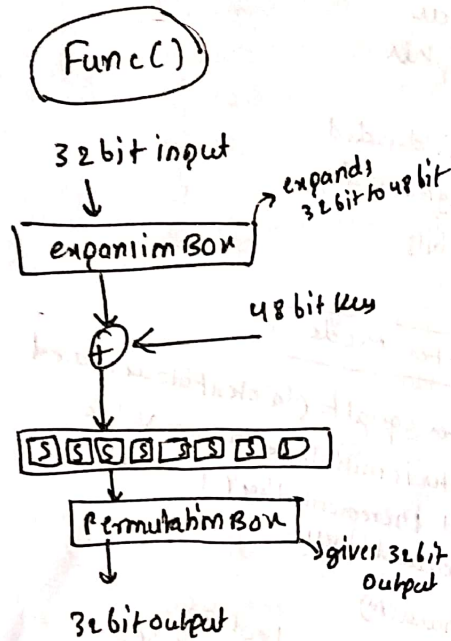 Func()
32bit input
expands
32bit to 48bit
expansion Box
48 bit key
+
S S S S S S S S
Permutation Box
gives 32bit
Output
32bit output